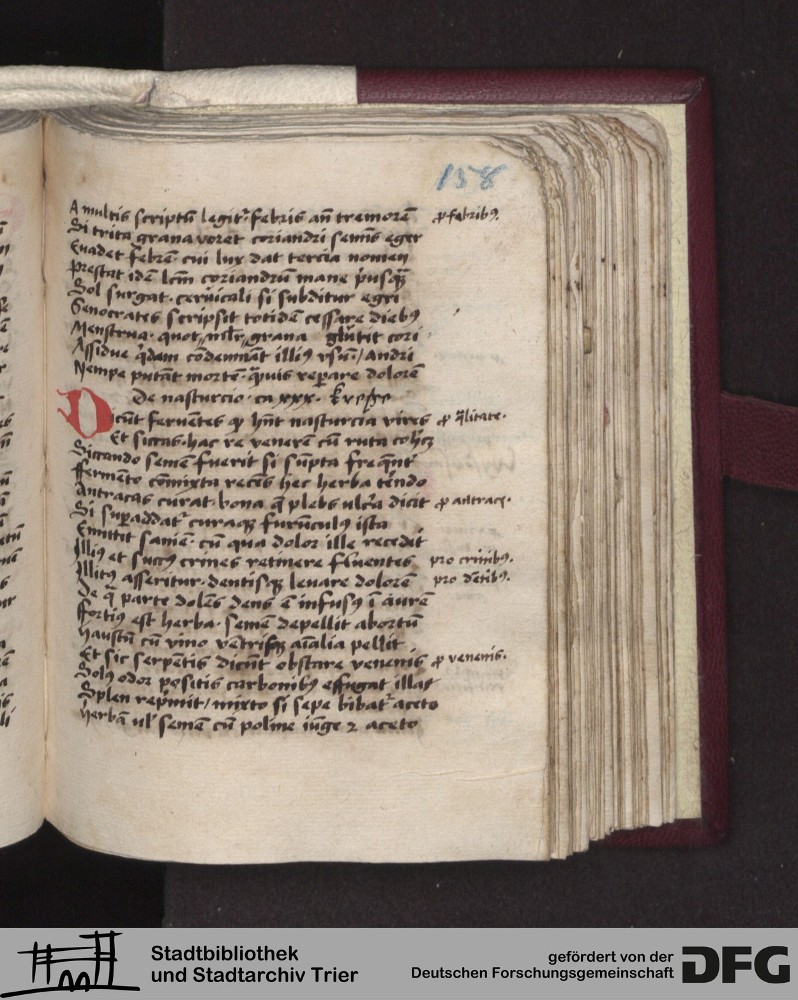 158
A multis scriptū legit᷑ febris añ tremorē ꝓ febribꝰ
Si trita grana voret coriandri semīs eger
Evadet febrē cui lux dat tercia nomen
Prestat idē coriandrū mane pusqᷓ
Sol surgat ceruicali si subditur egri
Senocrates scripsit totidē cessare diebꝰ
Menstrua quot grana glutit cori
Assidue qͥdam cōdemnāt illiꝰ vsū / andri
Nempe putāt mortē reperare dolorē
De nasturcio ca xxx
Dicūt feruētes qͥ hñt nasturcia vires ꝓ q̄litate
Et siccas hac re venerē cū ruta
Siccando semē fuerit si sūpta freqn̄t
ffermēto cōmixta recēs hec herba tēndo
Antracas curat bona qᷓ plebs ulcera dicit ꝓ antrace
Si superaddat᷑ curatqꝫ furūculꝰ ista
Emittit saniē cū qua dolor ille recedit
Illiꝰ et succꝰ crines retinere fluentes pro crinibꝰ
Illitꝰ asseritur dentisqꝫ leuare dolorē pro dētibꝰ
De qᷓ parte dolēs dens ē infusꝰ ī aurē
ffortiꝰ est herba semē depellit abortū
Haustū cū vino vētrisqꝫ aīalia pellit
Et sic serpētis dicūt obstare venenis ꝓ venenis
Solꝰ odor positis carbonibꝰ effugat illas
Splen rep̄mit / mixto si sepe bibat᷑ aceto
Herbā ul᷑ semē cū poline iūge ⁊ aceto
Stadtbibliothek
und Stadtarchiv Trier
gefördert von der
Deutschen Forschungsgemeinschaft
DFG